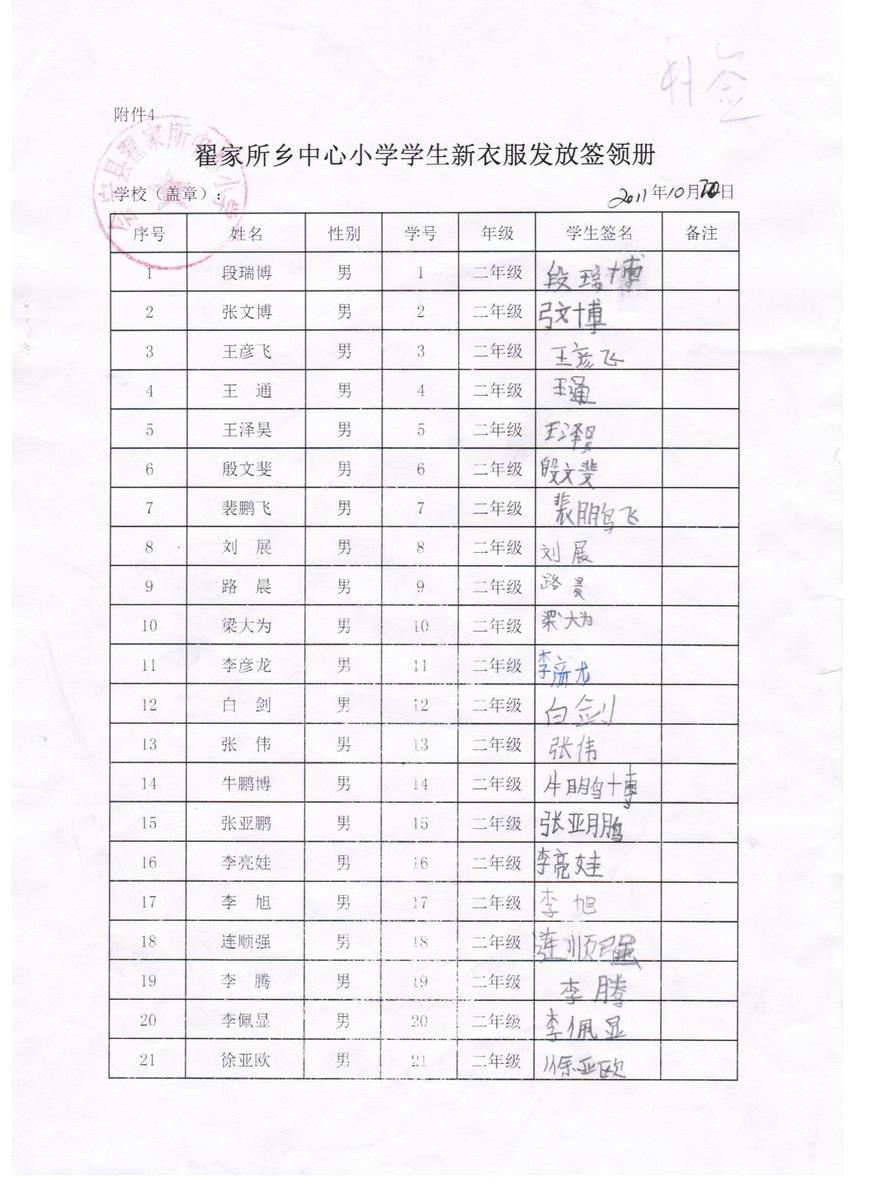 补签
附件4
翟家所乡中心小学学生新衣服发放签领册
学校（盖章）： 2011年10月20日
序号 姓名 性别 学号 年级 学生签名 备注
1 段瑞博 男 1 二年级 段瑞博
2 张文博 男 2 二年级 张文博
3 王彦飞 男 3 二年级 王彦飞
4 王 通 男 4 二年级 王通
5 王泽昊 男 5 二年级 王泽昊
6 殷文斐 男 6 二年级 殷文斐
7 裴鹏飞 男 7 二年级 裴鹏飞
8 刘 展 男 8 二年级 刘展
9 路 晨 男 9 二年级 路晨
10 梁大为 男 10 二年级 梁大为
11 李彦龙 男 11 二年级 李彦龙
12 白 剑 男 12 二年级 白剑
13 张 伟 男 13 二年级 张伟
14 牛鹏博 男 14 二年级 牛鹏博
15 张亚鹏 男 15 二年级 张亚鹏
16 李亮娃 男 16 二年级 李亮娃
17 李 旭 男 17 二年级 李旭
18 连顺强 男 18 二年级 连顺强
19 李 腾 男 19 二年级 李腾
20 李佩显 男 20 二年级 李佩显
21 徐亚欧 男 21 二年级 徐亚欧